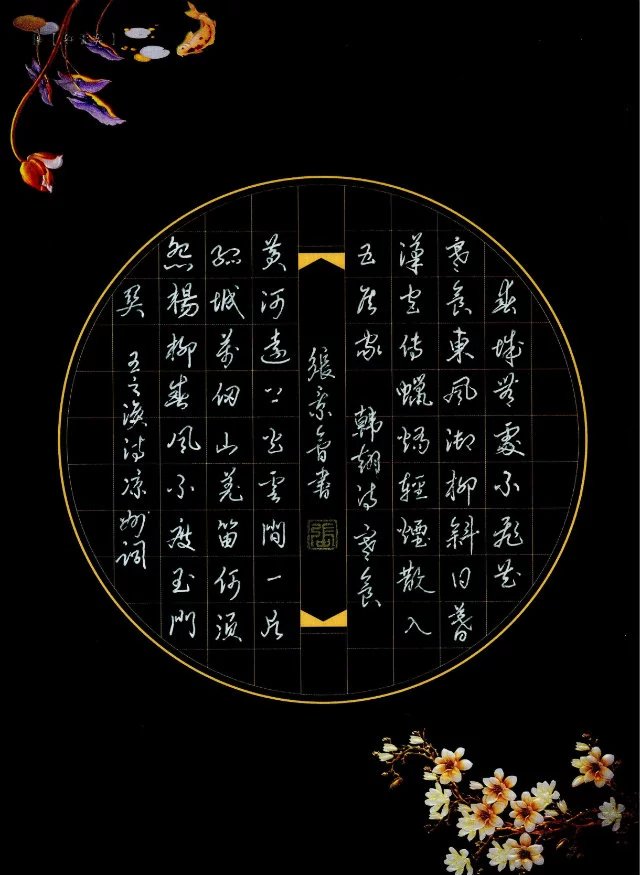 春城無處不飛花
寒食東風御柳斜日暮
漢宮傳蠟燭輕煙散入
五侯家 韓翃詩寒食
張 書
黃河遠上白雲間一片
孤城萬仞山羌笛何須
怨楊柳春風不度玉門
關 王之渙詩涼州詞